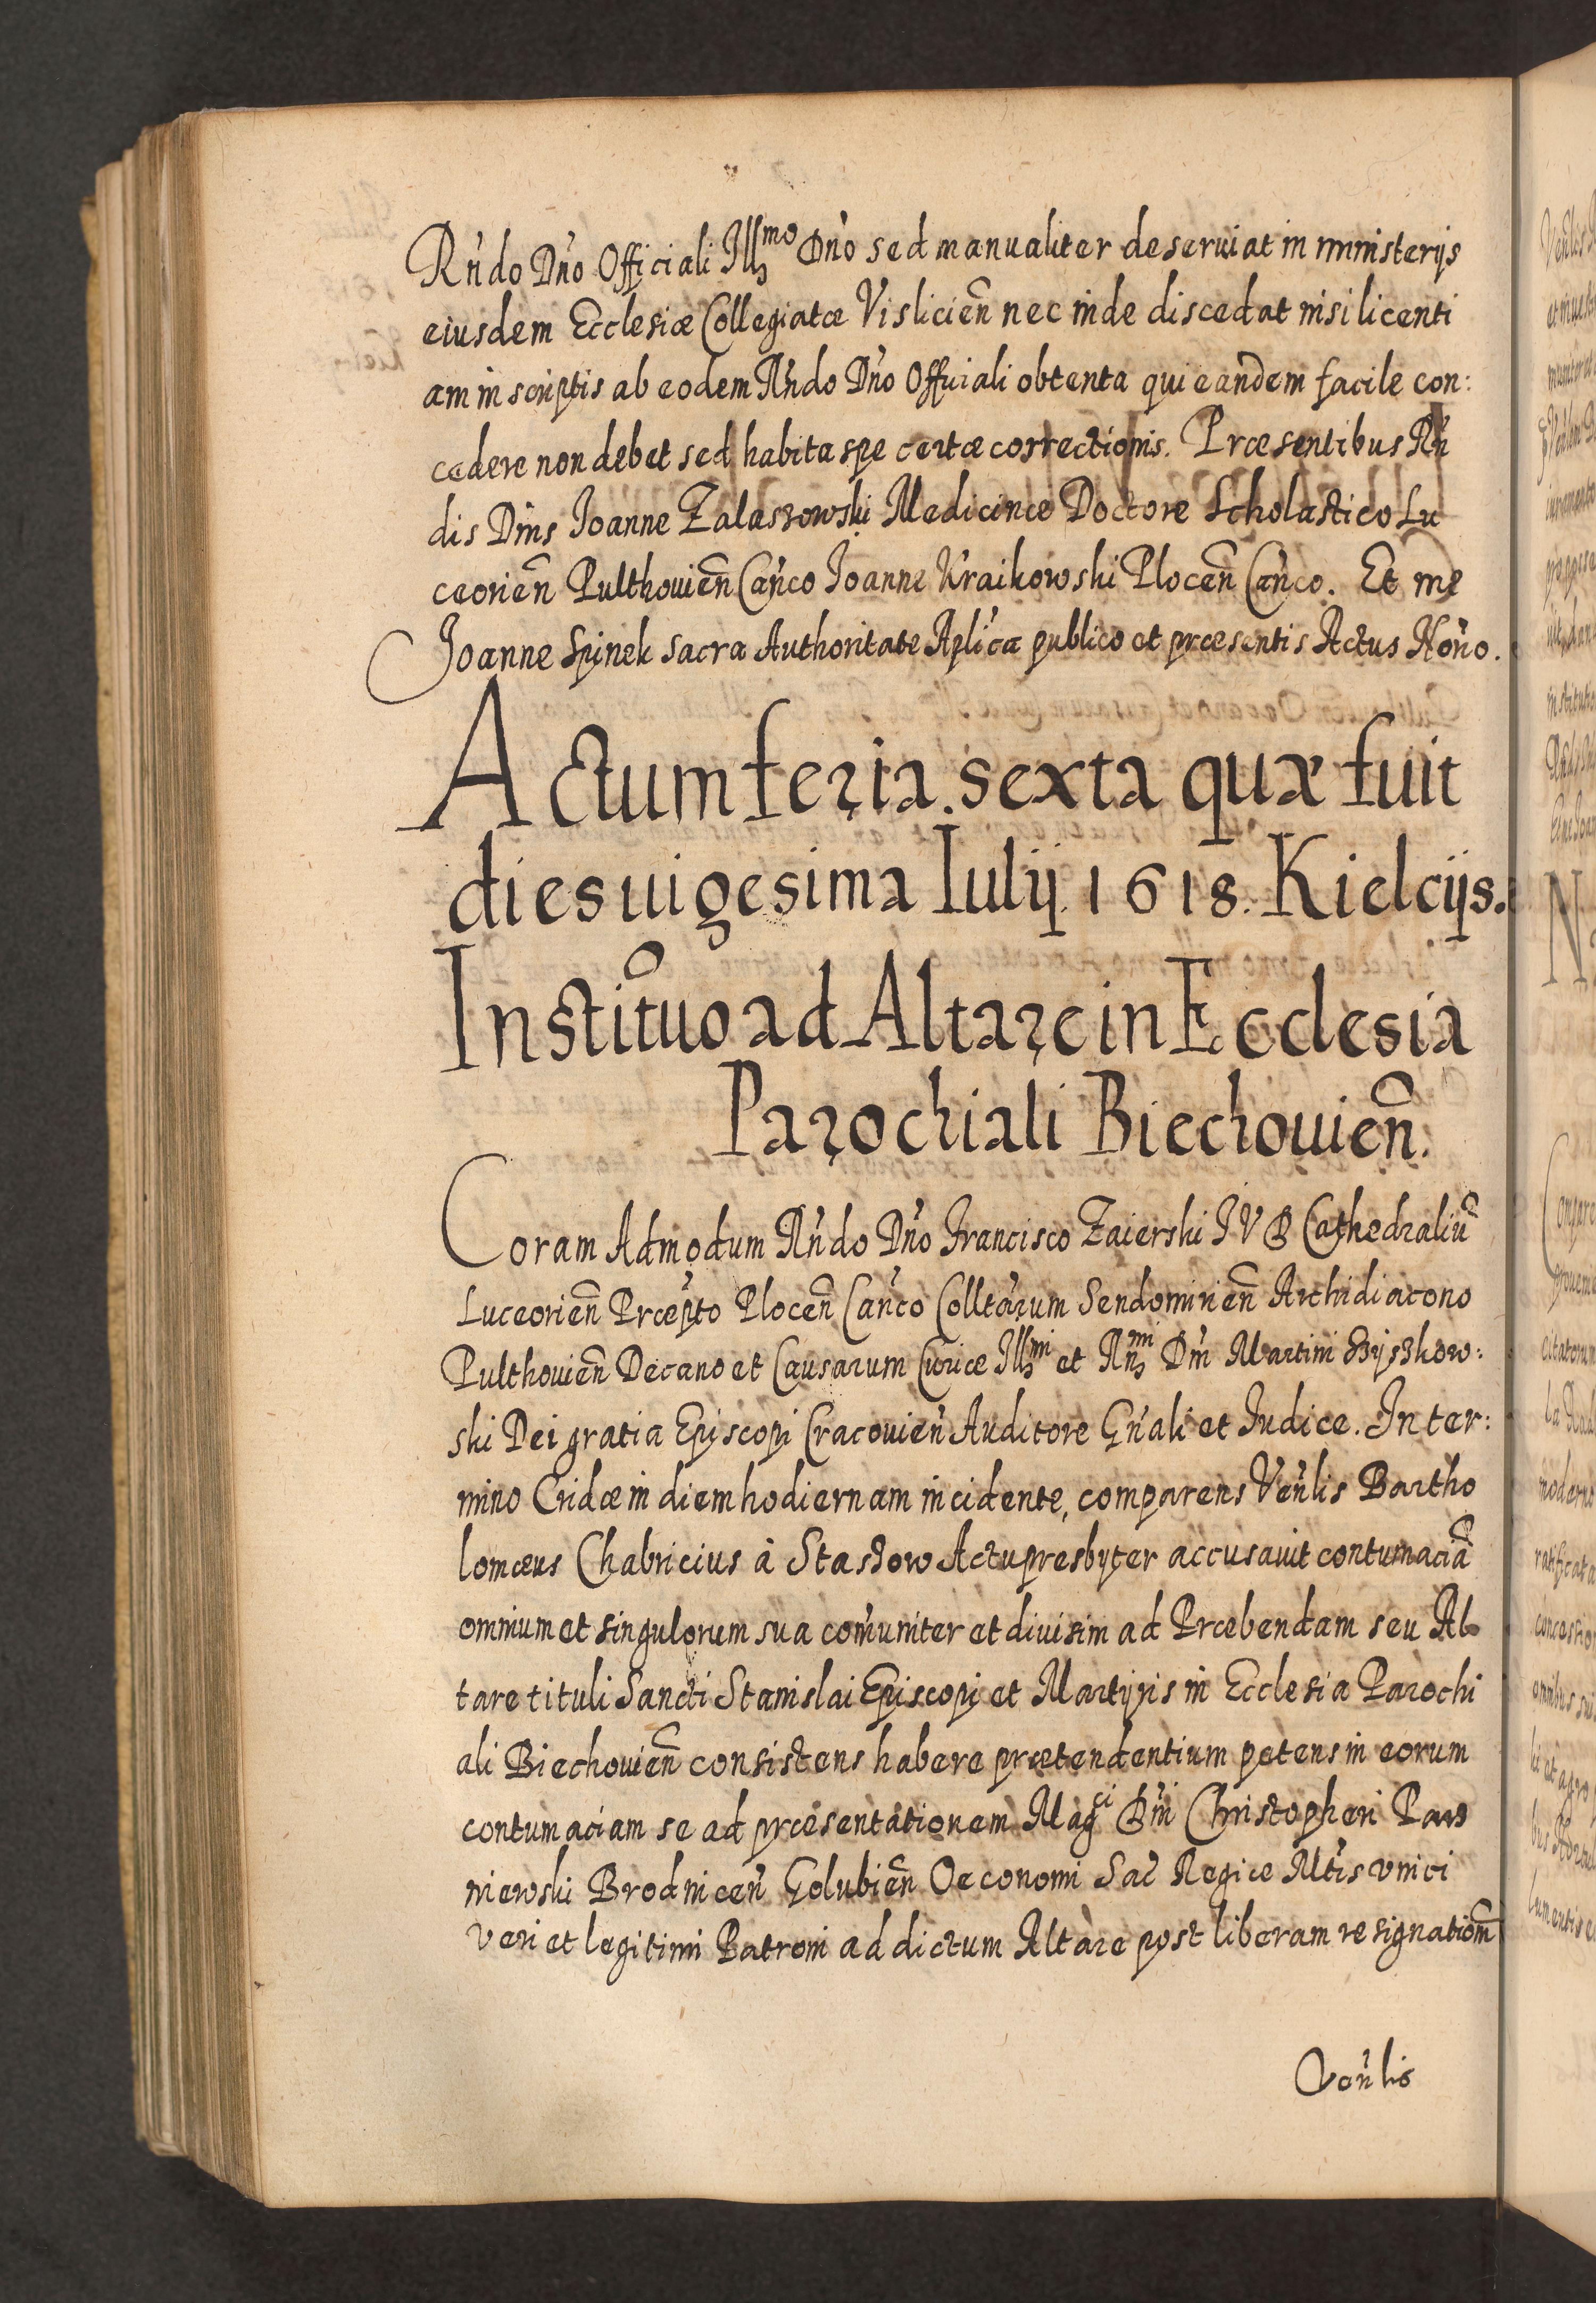 Rńdo Dńo Officiali Illmo Dńo sed manualiter deseruiat in ministerijs
eiusdem Ecclesiæ Collegiatæ Vislicień nec inde discedat nisi licenti
am in scriptis ab eodem Rńdo Dńo Officiali obtenta qui eandem facile con:
cedere non debet sed habita spe certæ correctionis. Præsentibus Rń
dis Dnis Joanne Zalaszowski Medicinæ Doctore Scholastico Lu
ceorień Pulthouień Cańco Joanne Kraikowski Ploceń Cańco. Et me
Joanne Spinek sacra Authoritate Aplića publico et præsentis Actus Norio.
Actum feria sexta quæ fuit
dies uigesima Iulij 1618. Kielcijs.
Institũo ad Altare in Ecclesia
Parochiali Biechouień.
Coram Admodum Rńdo Dńo Francisco Zaierski I V D Cathedraliũ
Luceorień Præpto Ploceń Cańco Colltarum Sendomirień Archidiacono
Pulthouień Decano et Causarum Curiæ Illmi et Rnmi Dni Martini Szyszkow:
ski Dei gratia Episcopi Cracouień Auditore Gńali et Iudice. In ter:
mino Cridæ in diem hodiernam incidente, comparens Veńlis Bartho
lomæus Chabricius à Staszow Actu presbyter accusauit contumaciã
omnium et singulorum sua com̃uniter et diuisim ad Præbendam seu Al
tare tituli Sancti Stanislai Episcopi et Martyris in Ecclesia Parochi
ali Biechouień consistens habere prætendentium petens in eorum
contumaciam se ad præsentationem Magci Dni Christopheri Paw
niewski Brodniceń Golubień Oeconomi Sac Regiæ Mtis vnici
veri et legitimi Patroni ad dictum Altare post liberam resignationm̃
Veńlis